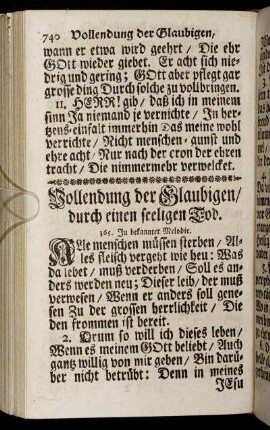 740 Vollendung der Glaubigen,
wann er etwa wird geehrt / Die ehr
GOtt wieder giebet. Er acht sich nie-
drig und gering; GOtt aber pflegt gar
grosse ding Durch solche zu vollbringen.
11. HERR! gib / daß ich in meinem
sinn Ja niemand je vernichte / In her-
tzens-einfalt immerhin Das meine wohl
verrichte / Nicht menschen-gunst und
ehre acht / Nur nach der cron der ehren
tracht / Die nimmermehr verwelcket.
Vollendung der Glaubigen /
durch einen seeligen Tod.
365. In bekannter Melodie.
ALle menschen müssen sterben / Al-
les fleisch vergeht wie heu: Was
da lebet / muß verderben / Soll es an-
ders werden neu; Dieser leib / der muß
verwesen / Wenn er anders soll gene-
sen Zu der grossen herrlichkeit / Die
den frommen ist bereit.
2. Drum so will ich dieses leben /
Wenn es meinem GOtt beliebt / Auch
gantz willig von mir geben / Bin darü-
ber nicht betrübt: Denn in meines
JEsu